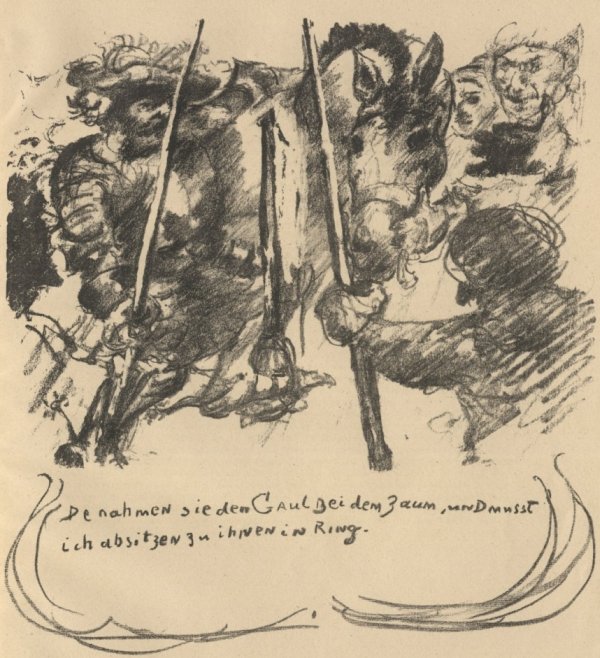 De nahmen sie den Gaul bei dem Zaum, und musst
ich absitzen zu ihnen in Ring.